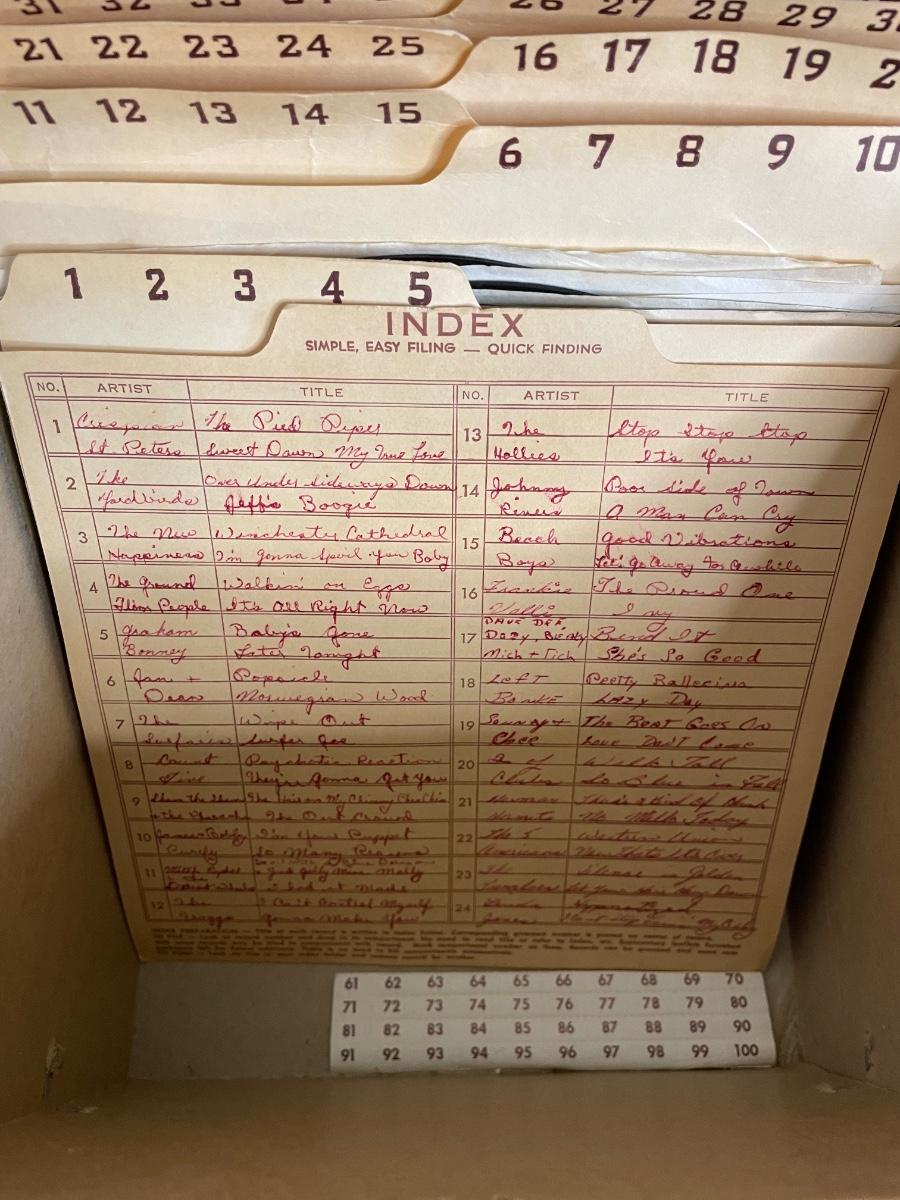 31 32 33 34 35
26 27 28 29 30
21 22 23 24 25
16 17 18 19 2
11 12 13 14 15
6 7 8 9 10
1 2 3 4 5
INDEX
SIMPLE, EASY FILING — QUICK FINDING
NO. ARTIST TITLE
1 Crispian The Pied Piper
St. Peters Sweet Dawn My True Love
2 The Over Under Sideways Down
Yardbirds Jeff's Boogie
3 The New Winchester Cathedral
Happiness I'm Gonna Spoil You Baby
4 The Ground Walkin' on Eggs
Floor People It's All Right Now
5 Graham Baby's Gone
Bonney Later Tonight
6 Jan + Popsicle
Dean Norwegian Wood
7 The Wipe Out
Surfaris Surfer Joe
8 Count Psychotic Reaction
Five They're Gonna Get You
9 Sham the Sham
The Out Crowd
10 James + Bobby I'm Your Puppet
Purify So Many Reasons
11 Mitch Ryder
+ Good Golly Miss Molly
I had it Made
12 The I Can't Control Myself
Troggs Gonna Make You
NO. ARTIST TITLE
13 The Stop Stop Stop
Hollies It's You
14 Johnny Poor Side of Town
Rivers A Man Can Cry
15 Beach Good Vibrations
Boys Let's Go Away For Awhile
16 Frankie The Proud One
Valli Ivy
17 DAVE DEE,
Dozy, Beaky Bend It
Mich + Tich She's So Good
18 Left Pretty Ballerina
Banke Lazy Day
19 Sonny + The Beat Goes On
Cher Love Don't Come
20 2 of Walk Tall
Clubs So Blue is Fall
21 Herman There's a Kind Of Hush
Hermits No Milk Today
22 The 5 Western Union
Americans Now That's Its Over
23 The Silence is Golden
Tremeloes Let Your Hair Hang Down
24 Linda Hypnotized
Jones
61 62 63 64 65 66 67 68 69 70
71 72 73 74 75 76 77 78 79 80
81 82 83 84 85 86 87 88 89 90
91 92 93 94 95 96 97 98 99 100